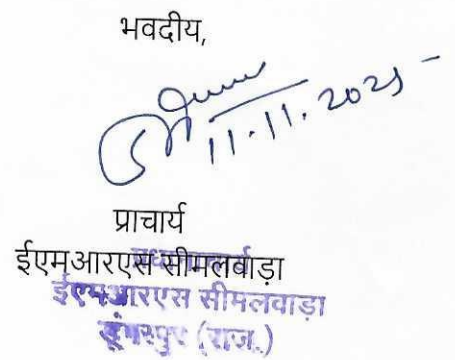 भवदीय,
11.11.2025
प्राचार्य
ईएमआरएस सीमलवाड़ा
ईएमआरएस सीमलवाड़ा
डूंगरपुर (राज.)